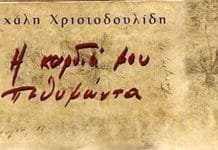 χάλη Χριστοδουλίδη
Η καρδιά μου
πεθυμώντα